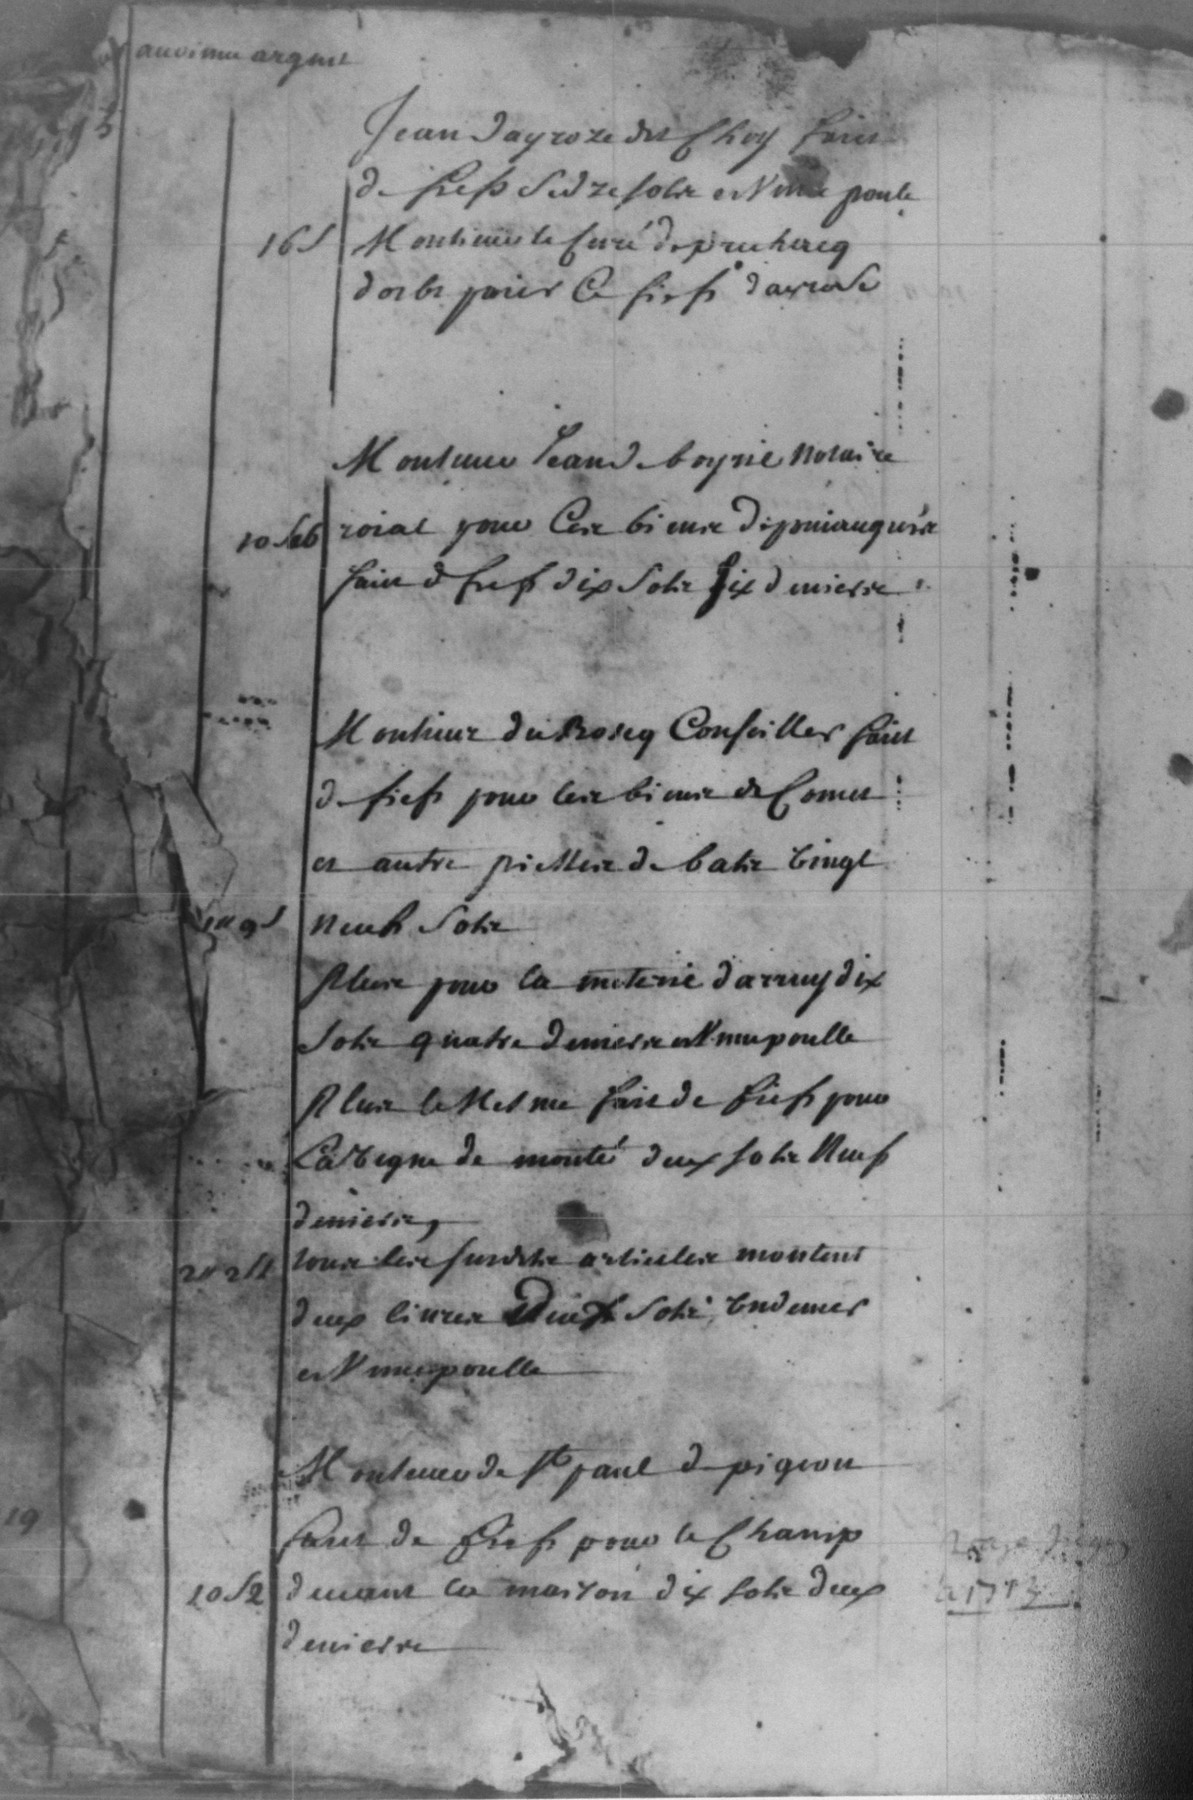 argent
Jean dayroze dit Choy faict
de fiefs sedze sols et Vne poule
16 s
Monsieur le Curé de
doibt paier Ce fiefs dayrose
Monsieur Jean de boyrie Notaire
10 s 6
roial pour Ces biens
faict de fiefs dix sols six deniers
Monsieur du Boscq Conseiller faict
de fiefs pour les biens de Comet
et autre piesses de batz vingt
1 " 9 s
neuf sols
Plus pour la meterie darruy dix
sols quatre deniers et Vne poulle
Plus le Mesme faict de fiefs pour
La vigne de monté deux sols Neuf
deniers,
tous les susdits articles montent
2 " 2 s 1
deux livres deux sols, un denier
et Vne poulle
Monsieur de St paul de pigeon
faict de fiefs pour le Champ
10 s 2
deuant la maison dix sols deux
deniers
19